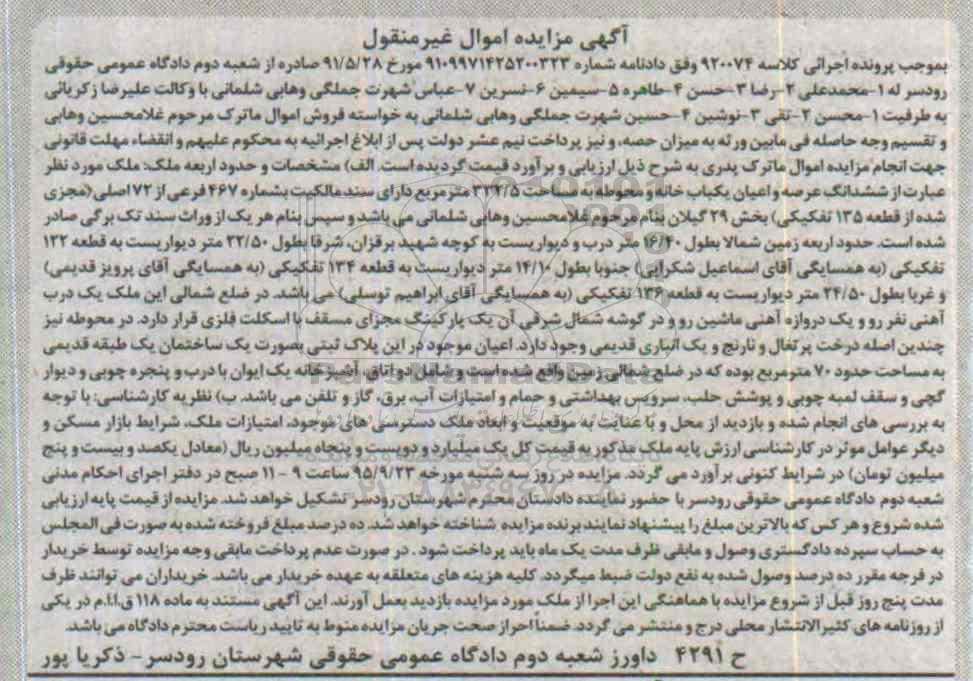 آگهی مزایده اموال غیرمنقول
بموجب پرونده اجرائی کلاسه ۹۲۰۰۷۴ وفق دادنامه شماره ۹۱۰۹۹۷۱۴۲۵۲۰۰۳۲۳ مورخ ۹۱/۵/۲۸ صادره از شعبه دوم دادگاه عمومی حقوقی
رودسر له ۱-محمدعلی ۲-رضا ۳-حسن ۴-طاهره ۵-سیمین ۶-نسرین ۷-عباس شهرت جملگی وهابی شلمانی با وکالت علیرضا زکریائی
به طرفیت ۱-محسن ۲-تقی ۳-نوشین ۴-حسین شهرت جملگی وهابی شلمانی به خواسته فروش اموال ماترک مرحوم غلامحسین وهابی
و تقسیم وجه حاصله فی مابین ورثه به میزان حصه، و نیز پرداخت نیم عشر دولت پس از ابلاغ اجرائیه به محکوم علیهم و انقضاء مهلت قانونی
جهت انجام مزایده اموال ماترک پدری به شرح ذیل ارزیابی و برآورد قیمت گردیده است. الف) مشخصات و حدود اربعه ملک: ملک مورد نظر
عبارت از ششدانگ عرصه و اعیان یکباب خانه و محوطه به مساحت ۳۳۴/۵ مترمربع دارای سند مالکیت بشماره ۴۶۷ فرعی از ۷۲ اصلی (مجزی
شده از قطعه ۱۳۵ تفکیکی) بخش ۲۹ گیلان بنام مرحوم غلامحسین وهابی شلمانی می باشد و سپس بنام هر یک از وراث سند تک برگی صادر
شده است. حدود اربعه زمین شمالا بطول ۱۶/۴۰ متر درب و دیواریست به کوچه شهید برقزان، شرقا بطول ۲۲/۵۰ متر دیواریست به قطعه ۱۲۲
تفکیکی (به همسایگی آقای اسماعیل شکرایی) جنوبا بطول ۱۴/۱۰ متر دیواریست به قطعه ۱۳۴ تفکیکی (به همسایگی آقای پرویز قدیمی)
و غربا بطول ۲۴/۵۰ متر دیواریست به قطعه ۱۳۶ تفکیکی (به همسایگی آقای ابراهیم توسلی) می باشد. در ضلع شمالی این ملک یک درب
آهنی نفر رو و یک دروازه آهنی ماشین رو و در گوشه شمال شرقی آن یک پارکینگ مجزای مسقف با اسکلت فلزی قرار دارد. در محوطه نیز
چندین اصله درخت پرتغال و نارنج و یک انباری قدیمی وجود دارد. اعیان موجود در این پلاک ثبتی بصورت یک ساختمان یک طبقه قدیمی
به مساحت حدود ۷۰ مترمربع بوده که در ضلع شمالی زمین واقع شده است و شامل دو اتاق، آشپزخانه یک ایوان با درب و پنجره چوبی و دیوار
گچی و سقف لمبه چوبی و پوشش حلب، سرویس بهداشتی و حمام و امتیازات آب، برق، گاز و تلفن می باشد. ب) نظریه کارشناسی: با توجه
به بررسی های انجام شده و بازدید از محل و با عنایت به موقعیت و ابعاد ملک دسترسی های موجود، امتیازات ملک، شرایط بازار مسکن و
دیگر عوامل موثر در کارشناسی ارزش پایه ملک مذکور به قیمت کل یک میلیارد و دویست و پنجاه میلیون ریال (معادل یکصد و بیست و پنج
میلیون تومان) در شرایط کنونی برآورد می گردد. مزایده در روز سه شنبه مورخه ۹۵/۹/۲۳ ساعت ۹ - ۱۱ صبح در دفتر اجرای احکام مدنی
شعبه دوم دادگاه عمومی حقوقی رودسر با حضور نماینده دادستان محترم شهرستان رودسر تشکیل خواهد شد. مزایده از قیمت پایه ارزیابی
شده شروع و هر کس که بالاترین مبلغ را پیشنهاد نمایند برنده مزایده شناخته خواهد شد. ده درصد مبلغ فروخته شده به صورت فی المجلس
به حساب سپرده دادگستری وصول و مابقی ظرف مدت یک ماه باید پرداخت شود . در صورت عدم پرداخت مابقی وجه مزایده توسط خریدار
در فرجه مقرر ده درصد وصول شده به نفع دولت ضبط میگردد. کلیه هزینه های متعلقه به عهده خریدار می باشد. خریداران می توانند ظرف
مدت پنج روز قبل از شروع مزایده با هماهنگی این اجرا از ملک مورد مزایده بازدید بعمل آورند. این آگهی مستند به ماده ۱۱۸ ق.ا.ا.م در یکی
از روزنامه های کثیرالانتشار محلی درج و منتشر می گردد. ضمناً احراز صحت جریان مزایده منوط به تایید ریاست محترم دادگاه می باشد.
ح ۴۲۹۱ داورز شعبه دوم دادگاه عمومی حقوقی شهرستان رودسر - ذکریا پور